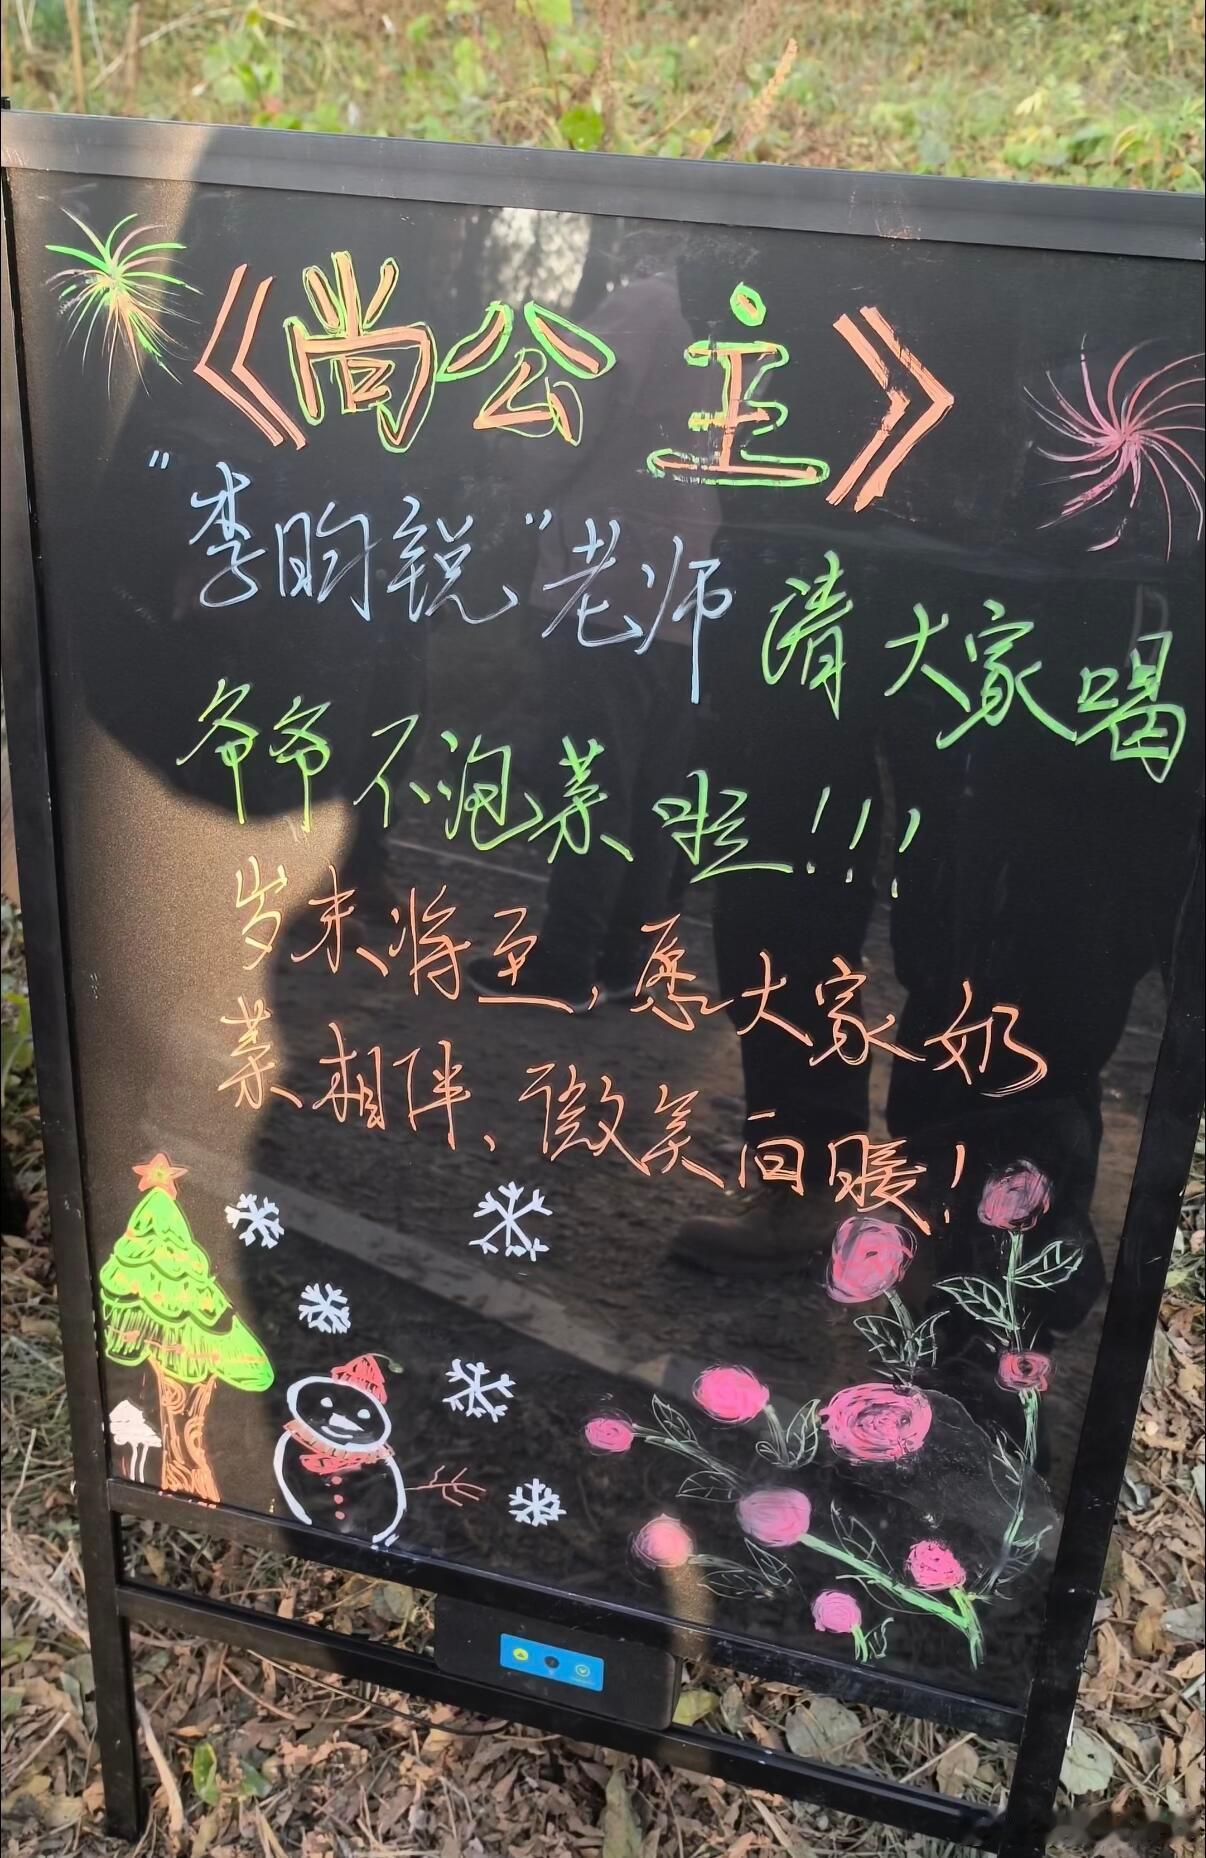 《尚公主》
"李昀锐"老师请大家喝
爷爷不泡茶啦!!!
岁末将至,愿大家奶
茶相伴、微笑回暖!